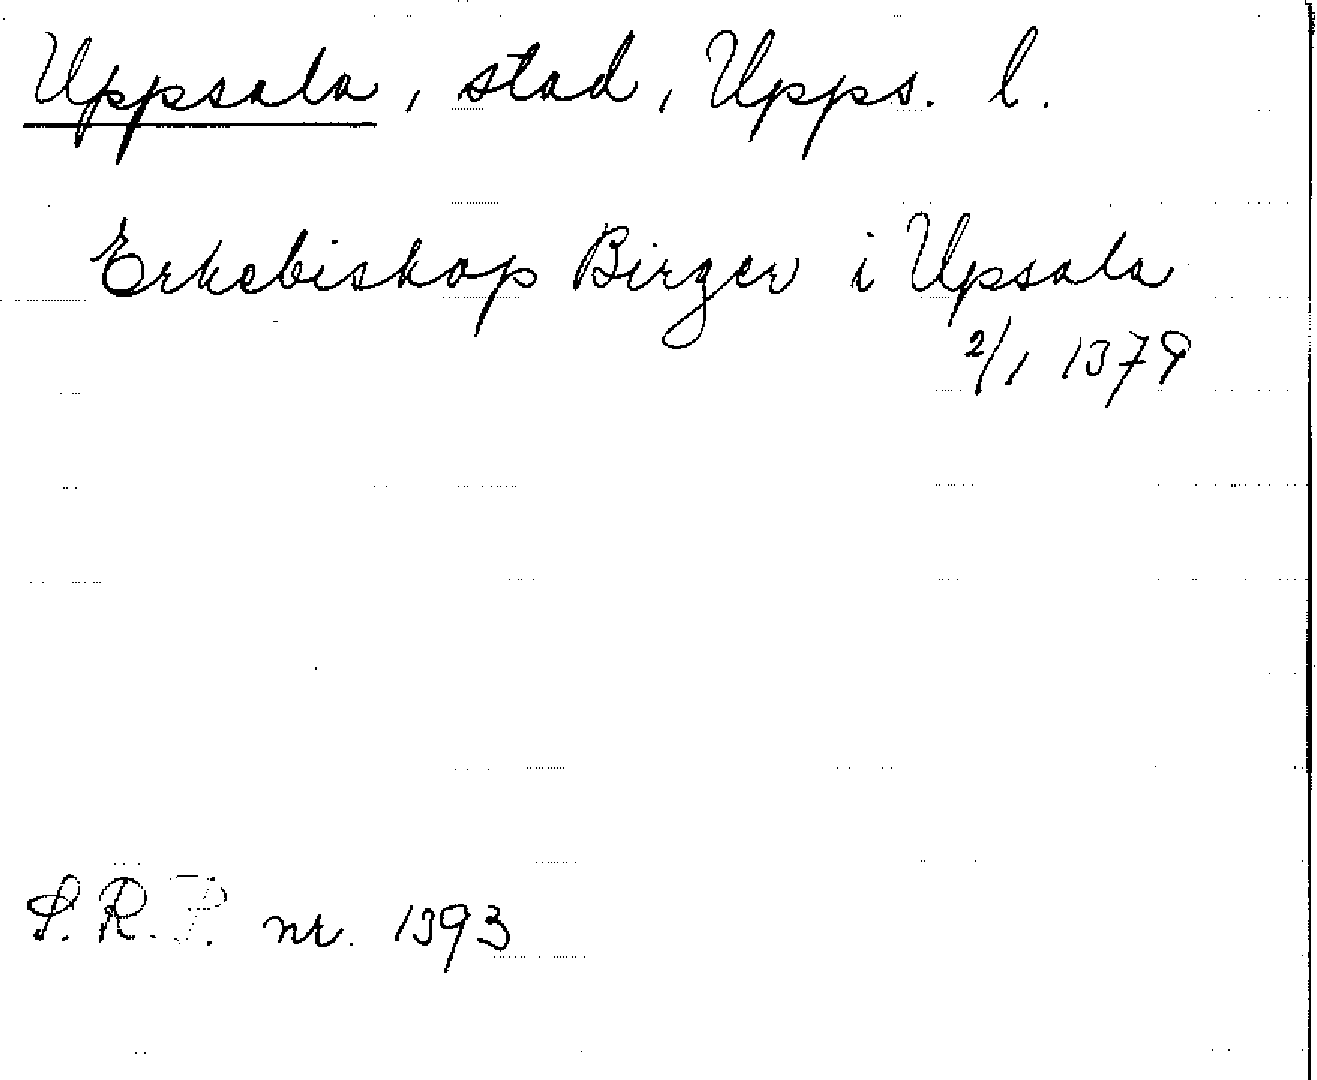 Uppsala, stad, Upps. l.
Erkebiskop Birger i Upsala
2/1 1379
S.R.P. nr. 1393